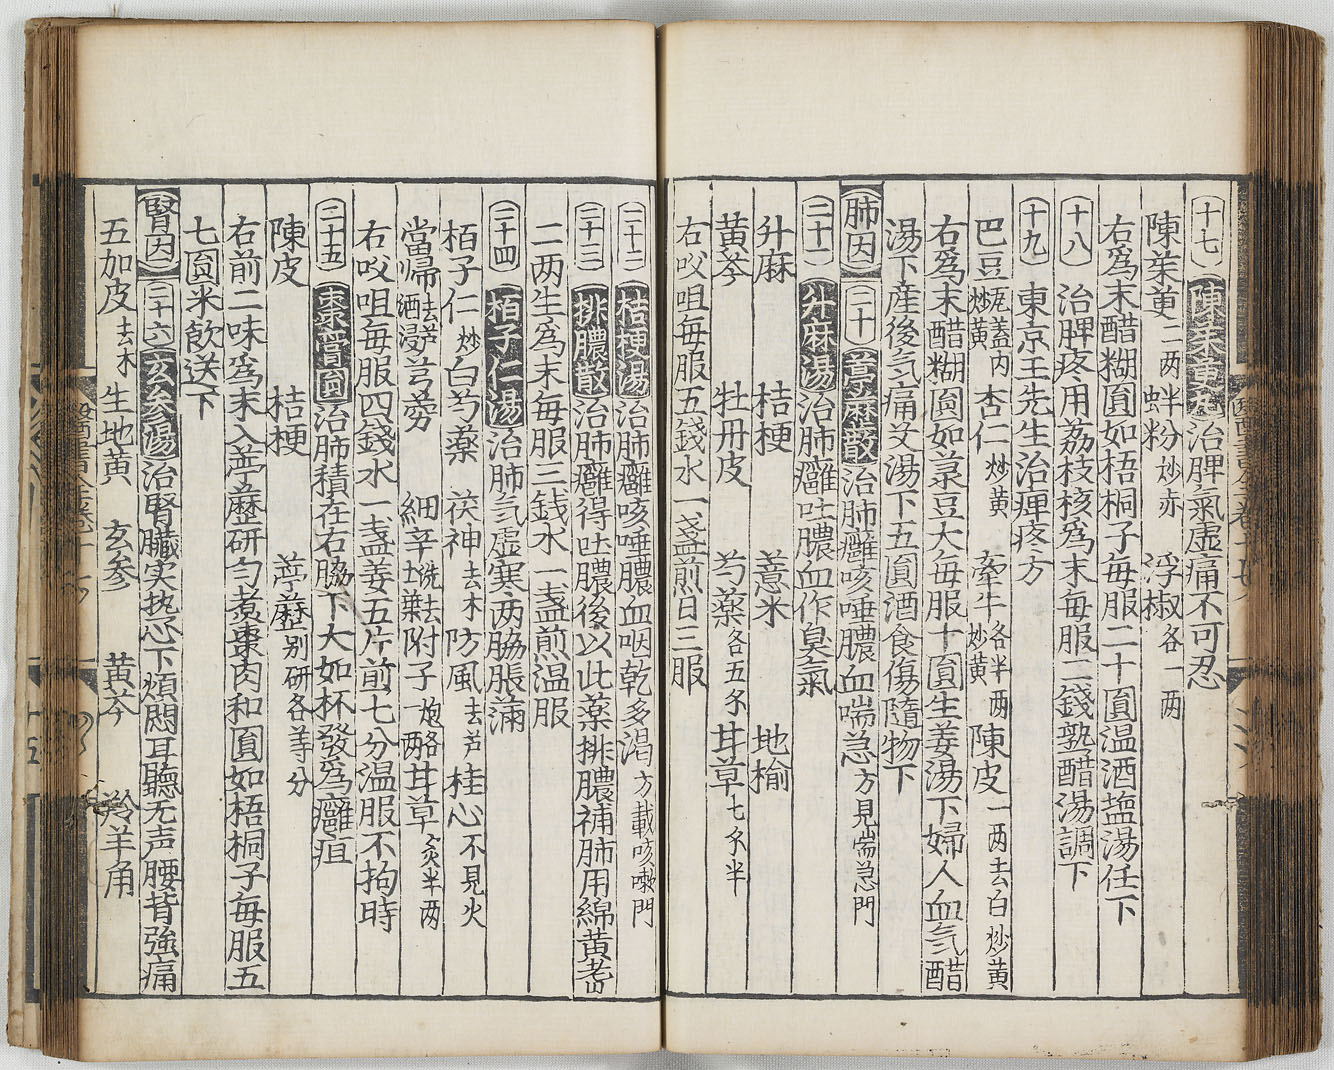 十七 陳茱萸丸 治脾氣虚痛不可忍
陳茱萸二两 蚌粉炒赤 浮椒各一两
右為末醋糊圎如梧桐子每服二十圎温酒塩湯任下
十八 治脾疼用荔枝核為末每服二錢熟醋湯調下
十九 東京王先生治痺疼方
巴豆 炒黄 杏仁炒黄 牽牛各半两炒黄 陳皮一两去白炒黄
右為末醋糊圎如菉豆大每服十圎生姜湯下婦人血气醋
湯下産後气痛艾湯下五圎酒食傷隨物下
肺因 二十 葶藶散 治肺癰咳唾膿血喘急方見喘急門
二十一 升麻湯 治肺癰吐膿血作臭氣
升麻 桔梗 薏米 地榆
黄芩 牡丹皮 芍薬各五分 甘草七分半
右㕮咀每服五錢水一盏煎日三服
二十二 桔梗湯 治肺癰咳唾膿血咽乾多渴方載咳嗽門
二十三 排膿散 治肺癰得吐膿後以此薬排膿補肺用綿黄耆
二两生為末每服三銭水一盏煎温服
二十四 栢子仁湯 治肺气虚寒两脇脹滿
栢子仁炒 白芍薬 茯神去木 防風去芦 桂心不見火
當歸去芦洒浸 芎藭 細辛洗去土 附子炮 甘草炙半两
右㕮咀每服四錢水一盏姜五片煎七分温服不拘時
二十五 棗膏圎 治肺積在右脇下大如杯發為癰疽
陳皮 桔梗 葶藶别研各等分
右前二味為末入葶藶研勻煮棗肉和圎如梧桐子每服五
七圎米飲送下
腎因 二十六 玄参湯 治腎臓实热心下煩悶耳聽无声腰背強痛
五加皮去木 生地黄 玄参 黄芩 羚羊角